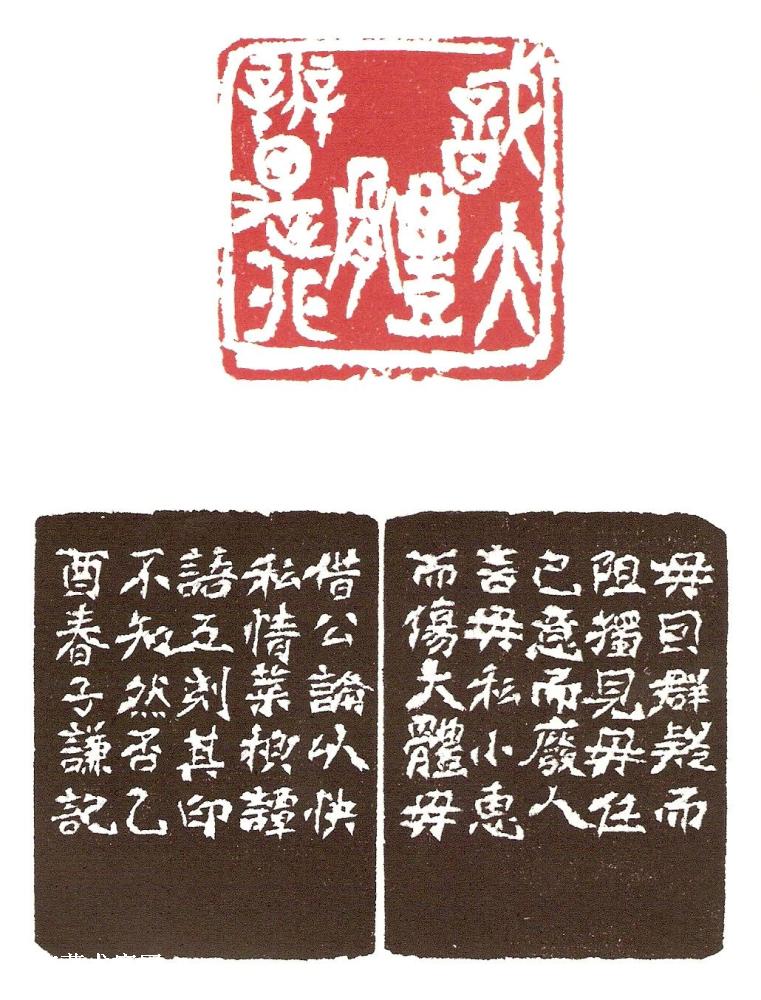 戠大
體
辨是非
毋因群疑而
阻獨見毋任
己意而廢人
言毋私小惠
而傷大體毋
借公論以快
私情菜根譚
語五刻其印
不知然否乙
酉春子謙記